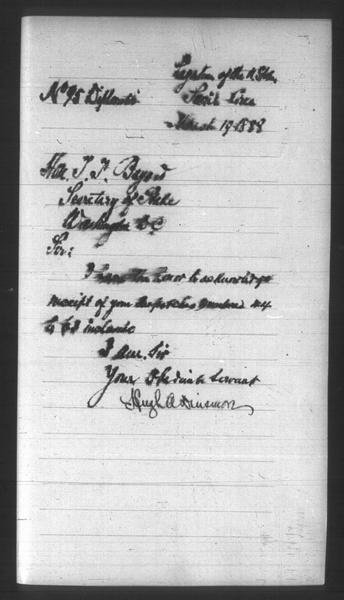 Legation of the U. States
No 95 Diplomatic Seoul Korea
March 19 1888
Hon. T. F. Bayard
Secretary of State
Washington D.C.
Sir:
I have the honor to acknowledge
receipt of your despatches numbered
to inclusive
I am, Sir
Your Obedient Servant
Hugh A Dinsmore